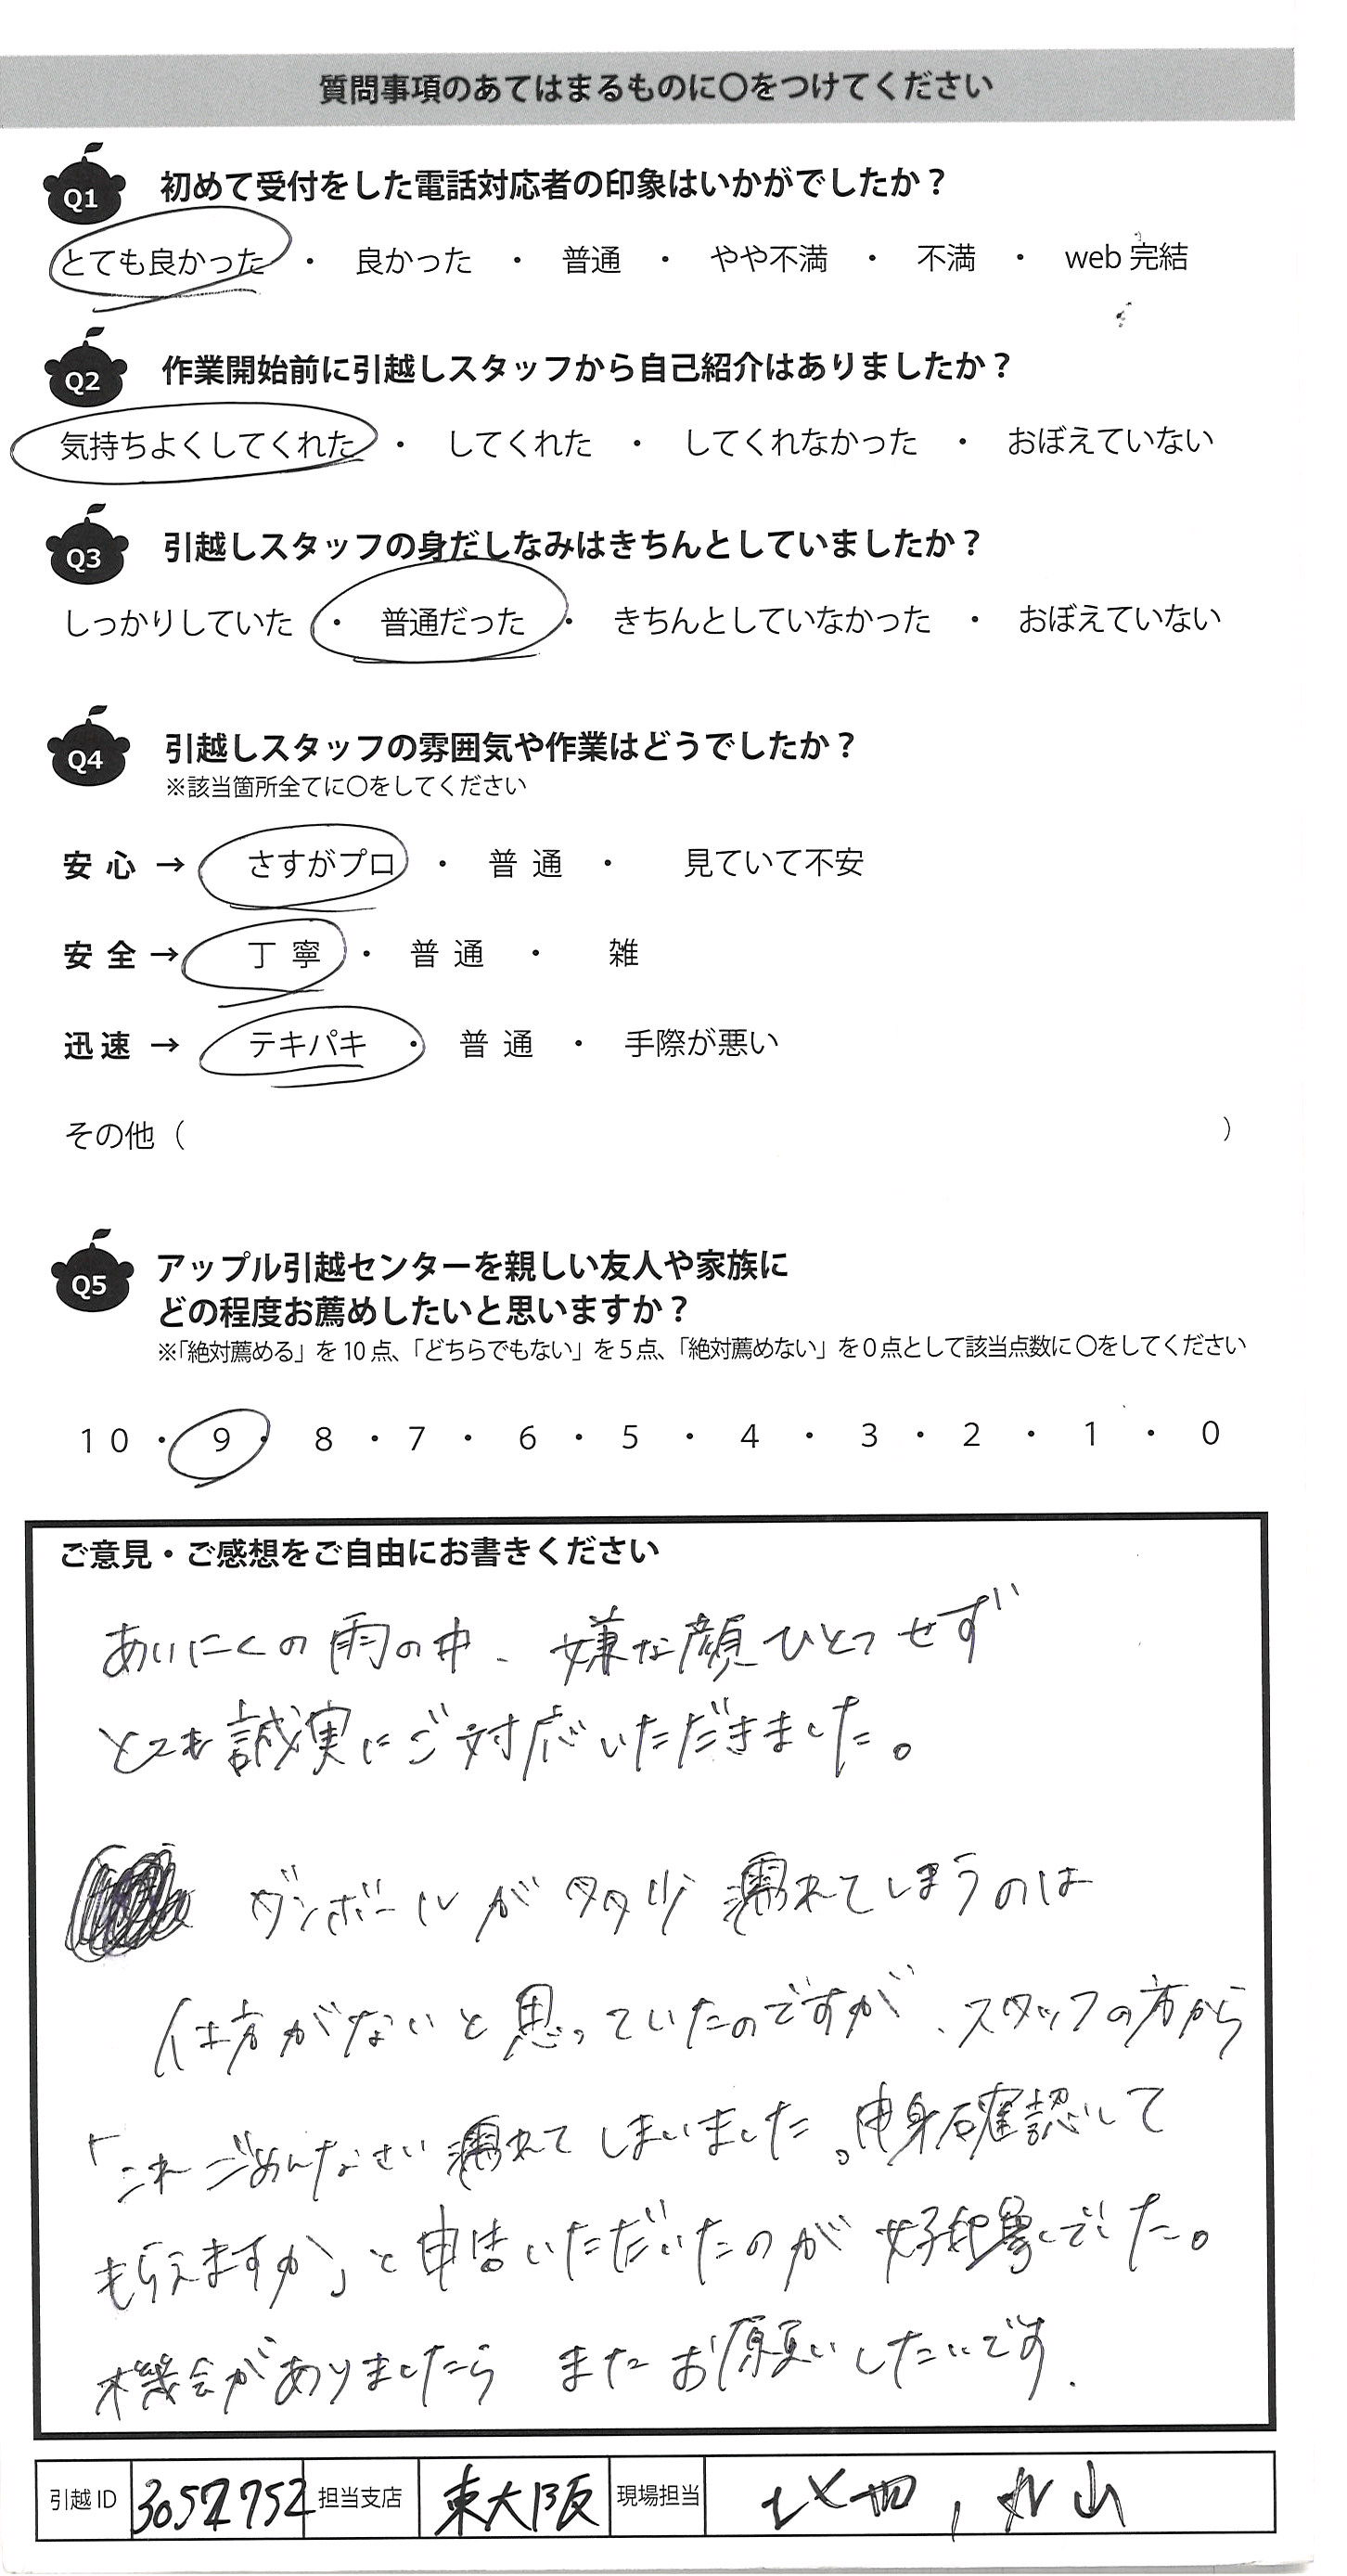 質問事項のあてはまるものに〇をつけてください
Q1 初めて受付をした電話対応者の印象はいかがでしたか？
とても良かった ・ 良かった ・ 普通 ・ やや不満 ・ 不満 ・ web 完結
Q2 作業開始前に引越しスタッフから自己紹介はありましたか？
気持ちよくしてくれた ・ してくれた ・ してくれなかった ・ おぼえていない
Q3 引越しスタッフの身だしなみはきちんとしていましたか？
しっかりしていた ・ 普通だった ・ きちんとしていなかった ・ おぼえていない
Q4 引越しスタッフの雰囲気や作業はどうでしたか？
※該当箇所全てに〇をしてください
安心 → さすがプロ ・ 普通 ・ 見ていて不安
安全 → 丁寧 ・ 普通 ・ 雑
迅速 → テキパキ ・ 普通 ・ 手際が悪い
その他（ ）
Q5 アップル引越センターを親しい友人や家族に
どの程度お薦めしたいと思いますか？
※「絶対薦める」を10点、「どちらでもない」を5点、「絶対薦めない」を0点として該当点数に〇をしてください
10 ・ 9 ・ 8 ・ 7 ・ 6 ・ 5 ・ 4 ・ 3 ・ 2 ・ 1 ・ 0
ご意見・ご感想をご自由にお書きください
あいにくの雨の中、嫌な顔ひとつせず
とても誠実にご対応いただきました。
ダンボールが多少濡れてしまうのは
仕方がないと思っていたのですが、スタッフの方から
「これごめんなさい濡れてしまいました。中身確認して
もらえますか」と申告いただいたのが好印象でした。
機会がありましたら またお願いしたいです.
引越ID 3052752 担当支店 東大阪 現場担当 丸山